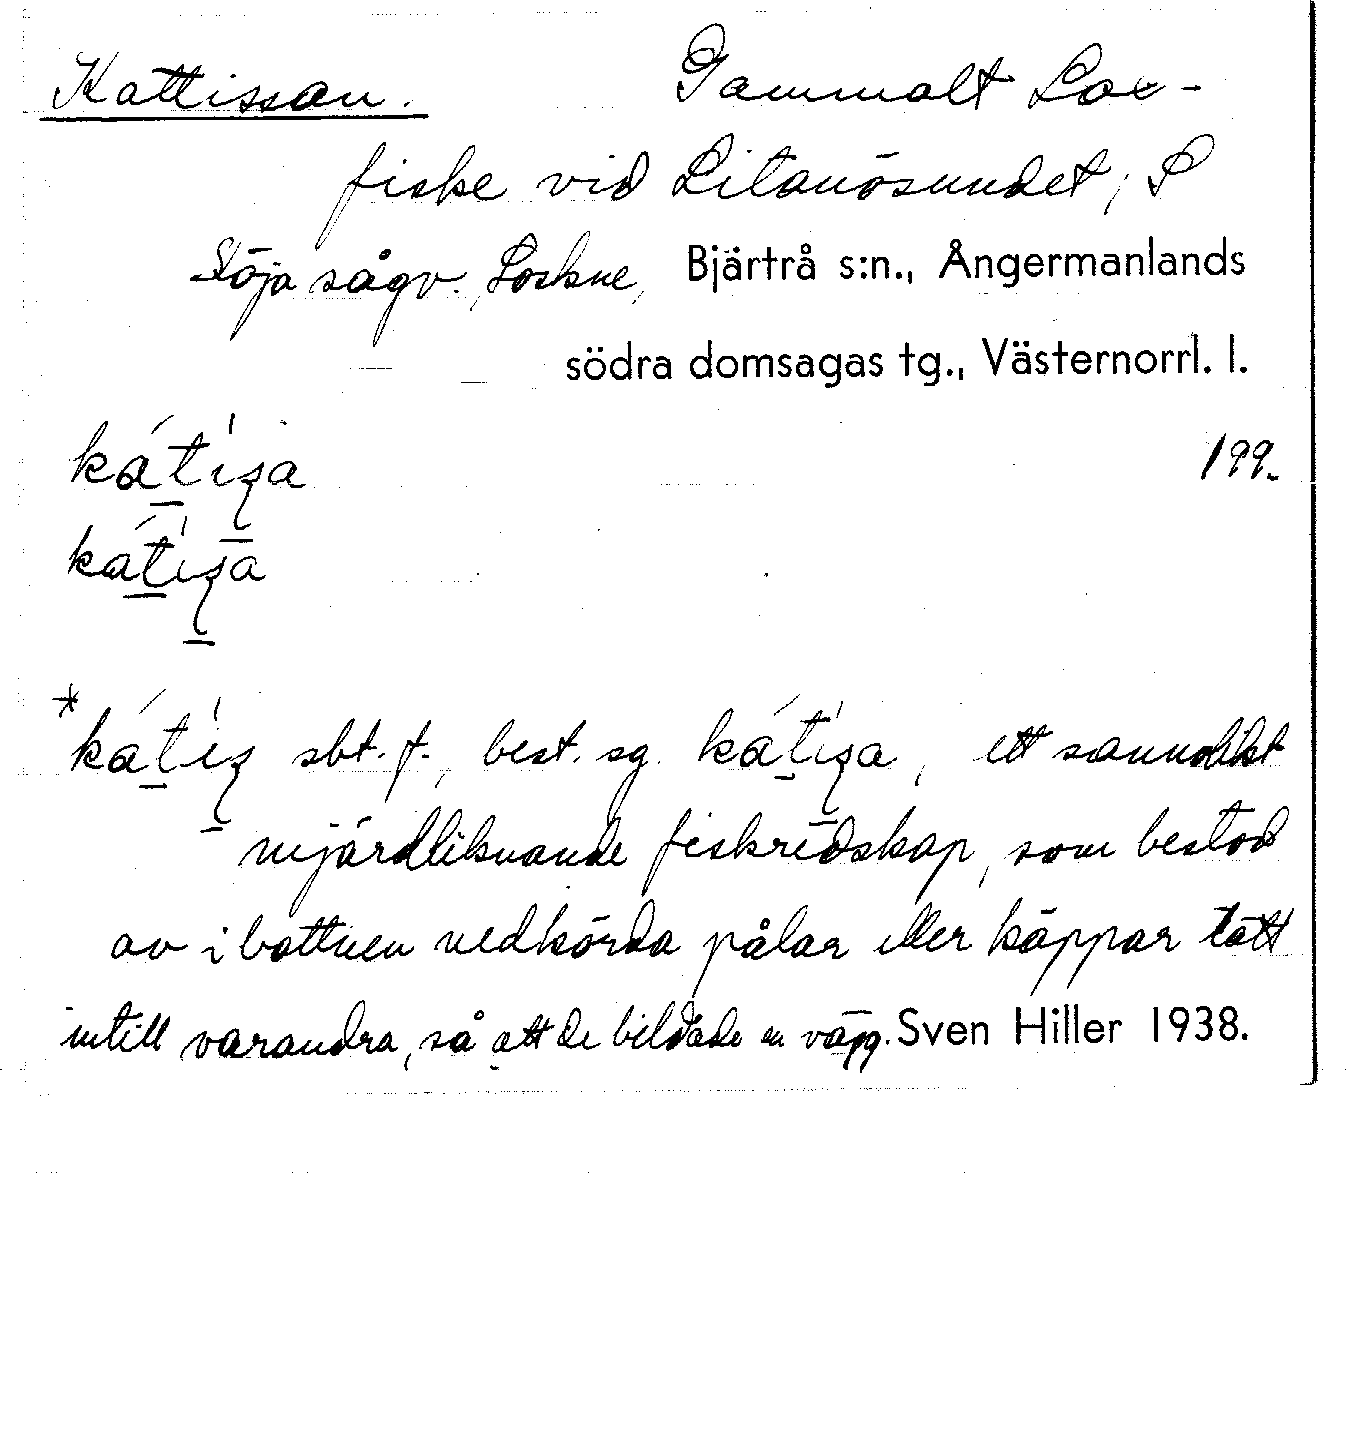 Kattissan. Gammalt Lax-
fiske vid Litanösundet, S
Stöja sågv. Lockne, Bjärtrå s:n., Ångermanlands
södra domsagas tg., Västernorrl. l.
199.
sbt. f., best. sg. , ett sannolikt
mjärdliknande fiskredskap, som bestod
av i bottnen nedkörda pålar eller käppar tätt
intill varandra, så att de bildade en vägg. Sven Hiller 1938.